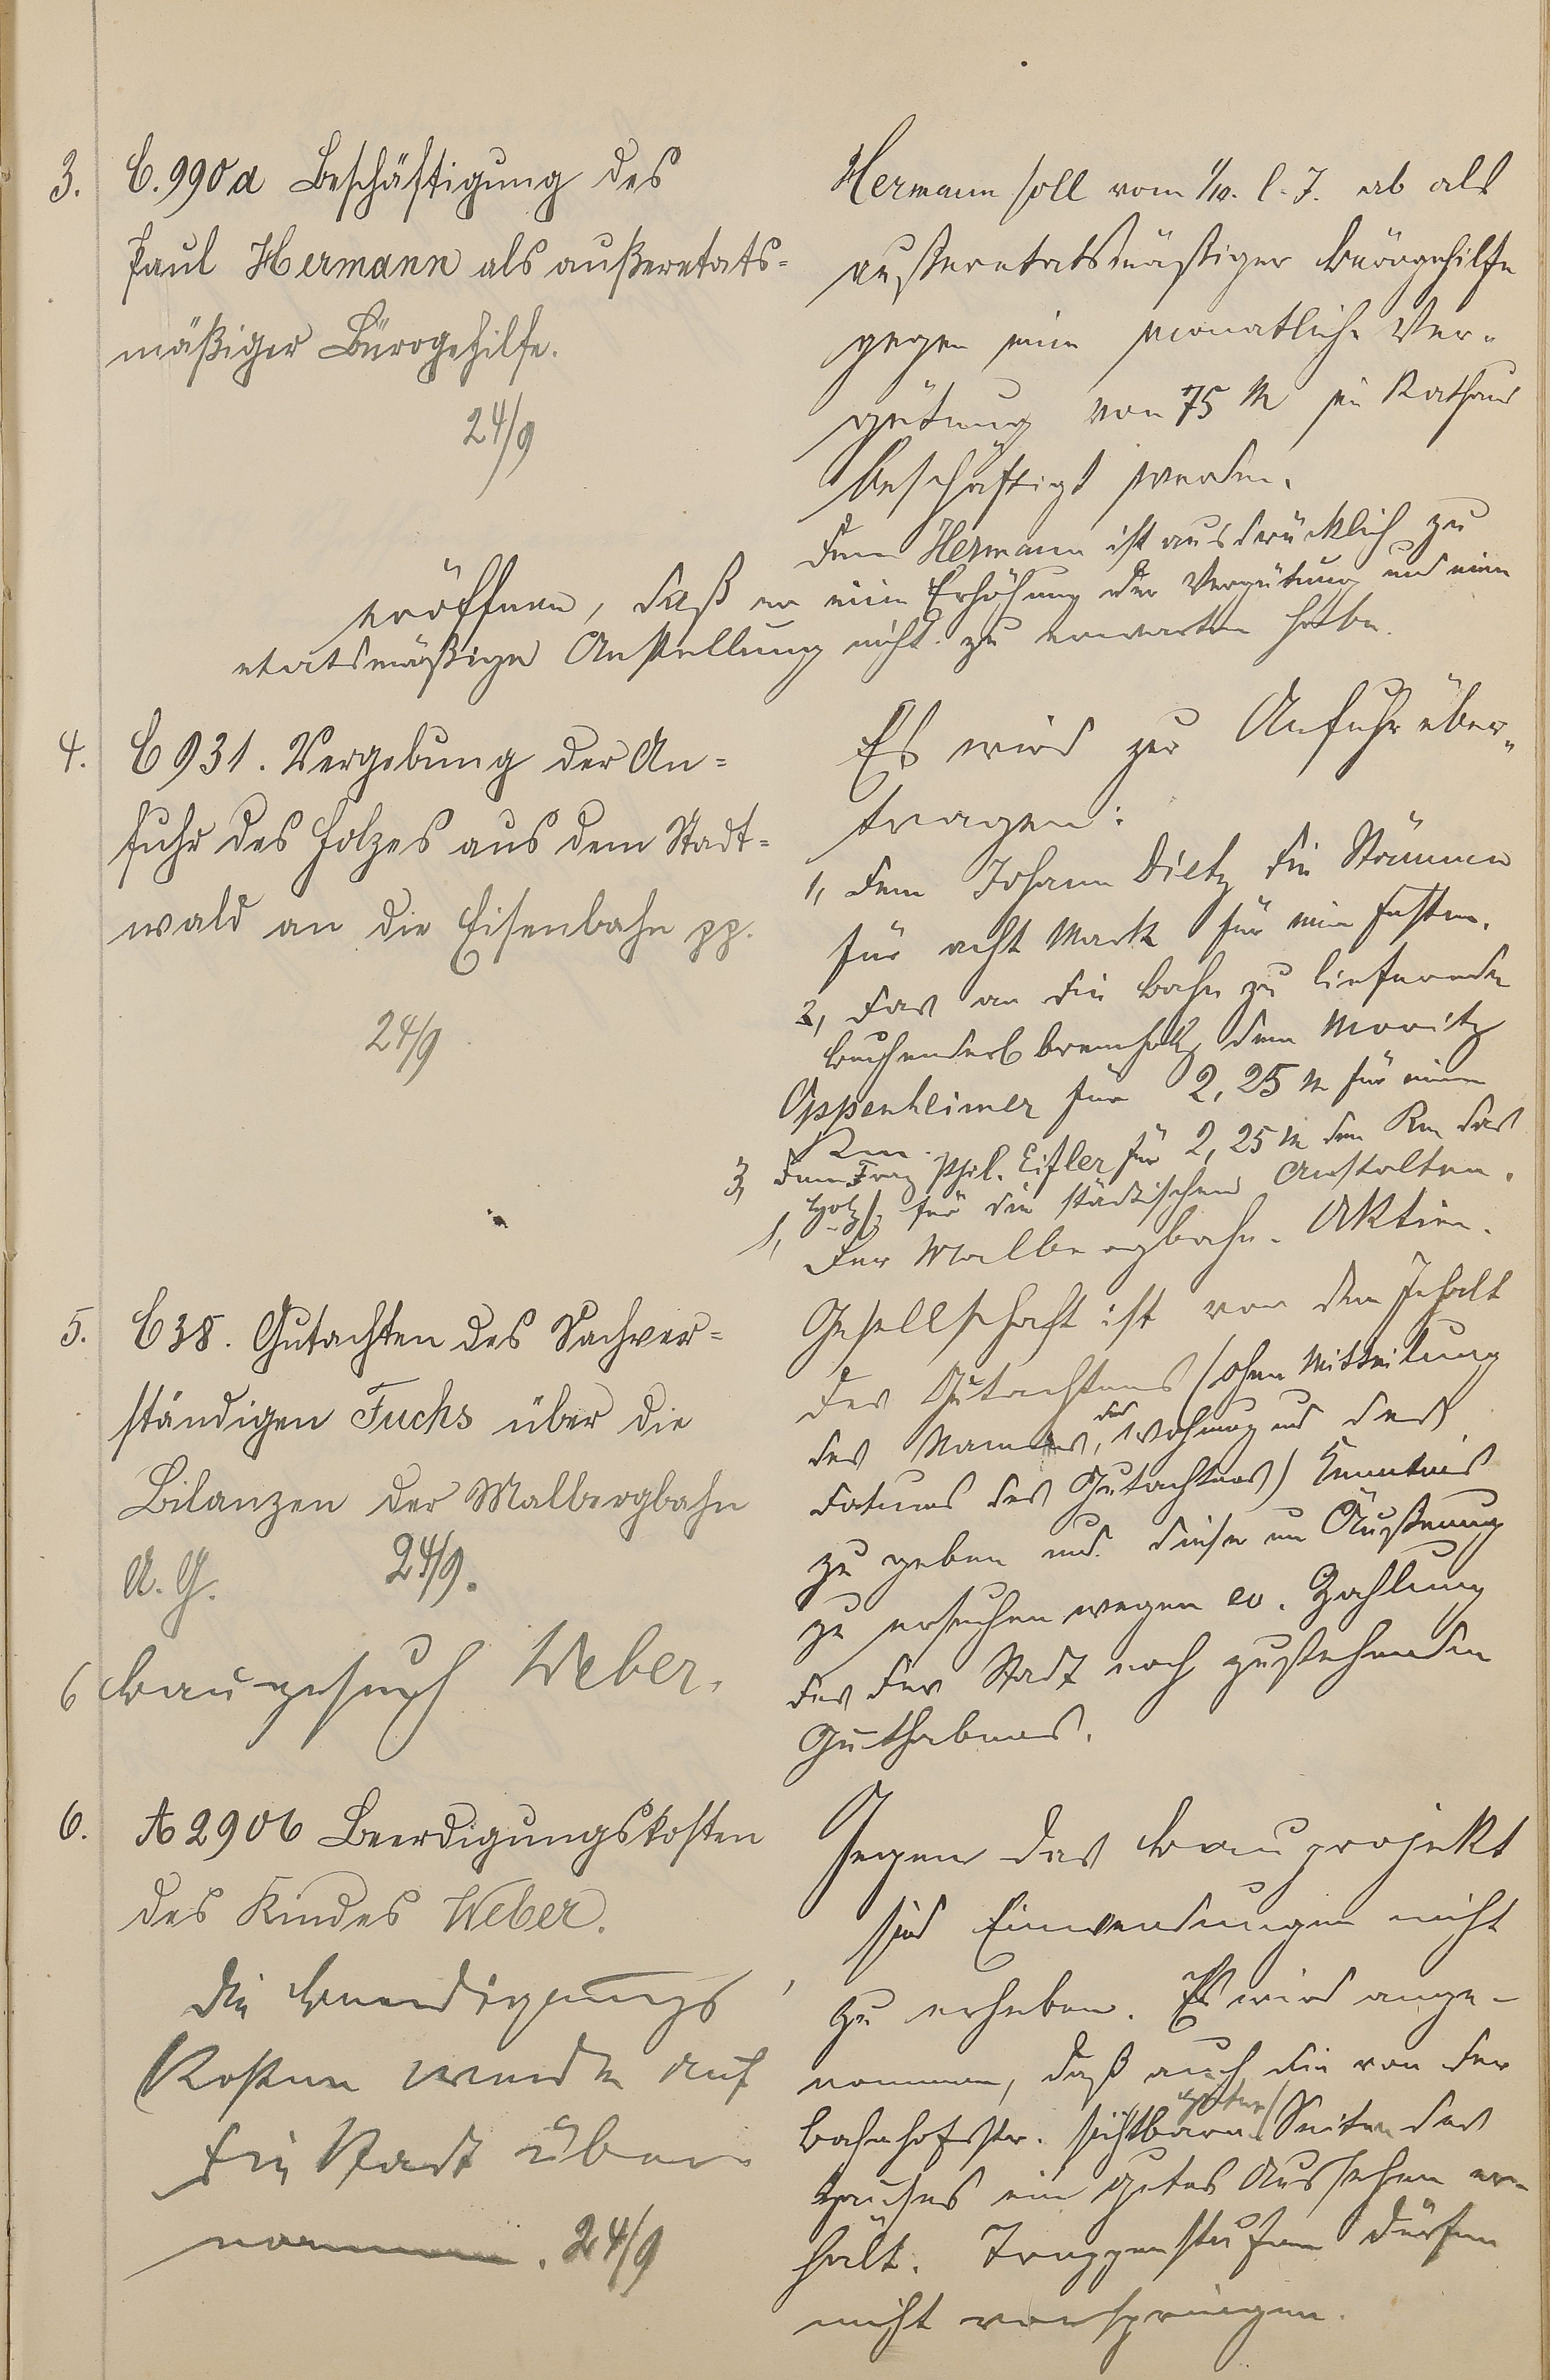 3. C. 990 a Beschäftigung des
Paul Hermann als außeretats=
mäßiger Bürogehilfe.
24/9
Hermann soll vom 1/10. l. J. ab als
außeretatsmäßiger Bürogehilfe
gegen eine monatliche Ver-
gütung von 75 M im Rathaus
beschäftigt werden.
Dem Hermann ist ausdrücklich zu
eröffnen, daß er eine Erhöhung der Vergütung und eine
etatsmäßige Anstellung nicht zu erwarten habe.
4. C 931. Vergebung der An=
fuhr des Holzes aus dem Stadt=
wald an die Eisenbahn pp.
24/9
Es wird zur Anfuhr über-
tragen:
1, dem Johann Dietz die Stämme
für acht Mark für einen Festm.
2, das an die Bahn zu liefernde
Buchenderbbrennholz dem Moritz
Oppenheimer für 2,25 M für einen
Rm.
3, dem Phil. Eisler für 2,25 M den Rm das
Holz für die städtischen Anstalten.
5. C 38. Gutachten des Sachver=
ständigen Fuchs über die
Bilanzen der Malbergbahn
A. G. 24/9.
Der Malbergbahn-Aktien-
Gesellschaft ist von dem Inhalt
des Gutachtens (ohne Mitteilung
des Namens, der Wohnung und des
Datums des Gutachtens) Kenntnis
zu geben und diese um Äußerung
zu ersuchen wegen ev. Zahlung
des der Stadt noch zustehenden
Guthabens.
6 Baugesuch Weber.
Gegen das Bauprojekt
sind Einwendungen nicht
zu erheben. Es wird ange-
nommen, daß auch die von der
Bahnhofstr. sichtbare Seite des
Hauses ein gutes Aussehen er-
hält. Treppenstufen dürfen
nicht vorspringen.
6. A 2906 Beerdigungskosten
des Kindes Weber.
Die Beerdigungs
Kosten werden auf
die Stadt über-
nommen. 24/9